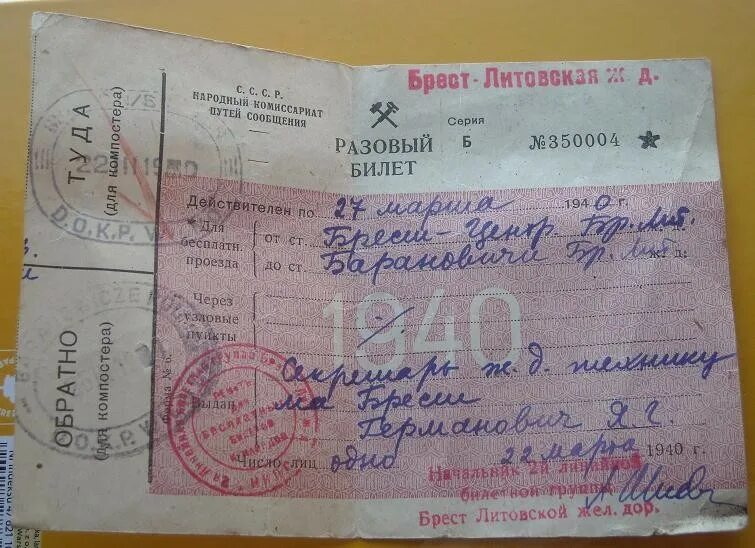 Брест-Литовская ж. д.
С. С. С. Р.
НАРОДНЫЙ КОМИССАРИАТ
ПУТЕЙ СООБЩЕНИЯ
РАЗОВЫЙ
БИЛЕТ
Серия
Б №350004
ТУДА
(для компостера)
D.O.K.P.
ОБРАТНО
(для компостера)
O.K.P.
Форма № 6.
Действителен по 27 марта 1940 г.
Для
бесплатн.
проезда
от ст. Брест-Центр. Бр. Лит.
до ст. Барановичи Бр. Лит. ж. д.
Через
узловые
пункты
1940
Выдан Секретарь ж. д. технику
ма Брест
Германович Я. Г.
Число лиц одно 22 марта 1940 г.
Начальник 2й линейной
билетной группы
Брест Литовской жел. дор.